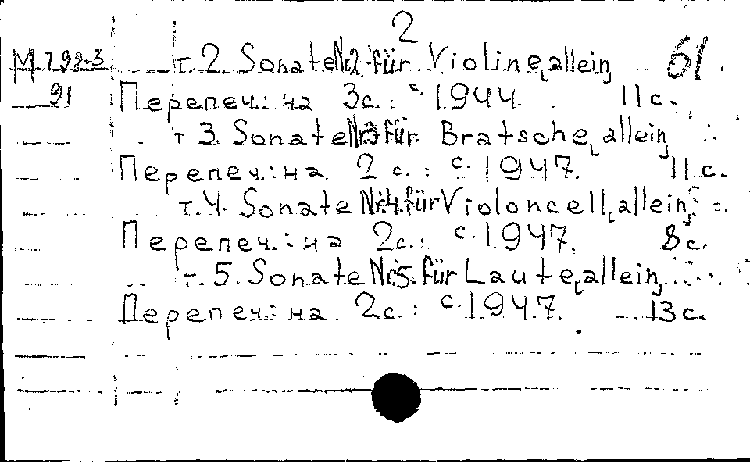 2
М 793-3 т. 2. Sonate Nr2 für Violine, allein 61.
91 Перепеч.: на 3с.: c 1944. 11 с.
т 3. Sonate Nr3 für Bratsche, allein
Перепеч.: на 2 с.: c 1947. 11 с.
т. 4. Sonate Nr.4. für Violoncell, allein
Перепеч.: на 2с.: c 1947. 8 с.
т. 5. Sonate Nr.5. für Laute, allein
Перепеч.: на 2с.: c 1947. 13 с.